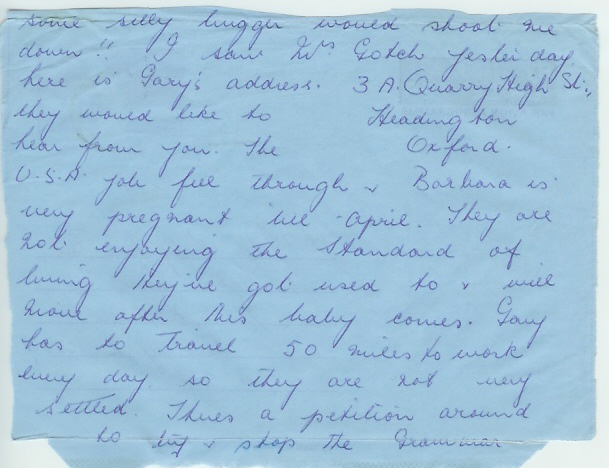 some silly bugger would shoot me
down!! I saw Mrs Gotch yesterday
here is Gary's address. 3 A. Quarry High St.,
they would like to Headington
hear from you. The Oxford.
U.S.A. job fell through & Barbara is
very pregnant till April. They are
not enjoying the standard of
living they've got used to & will
move after this baby comes. Gary
has to travel 50 miles to work
every day so they are not very
settled. Theres a petition around
to try & stop the Grammar